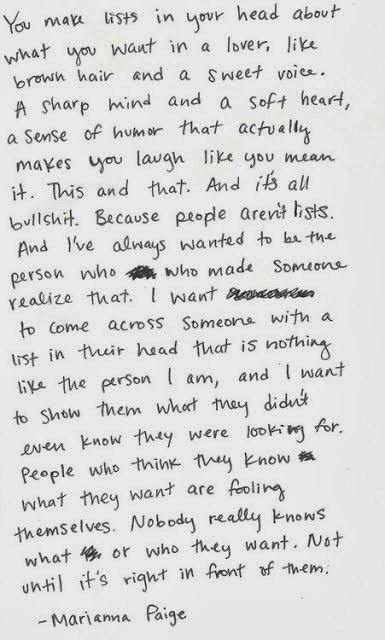 You make lists in your head about
what you want in a lover, like
brown hair and a sweet voice.
A sharp mind and a soft heart,
a sense of humor that actually
makes you laugh like you mean
it. This and that. And it's all
bullshit. Because people aren't lists.
And I've always wanted to be the
person who who made someone
realize that. I want
to come across someone with a
list in their head that is nothing
like the person I am, and I want
to show them what they didn't
even know they were looking for.
People who think they know
what they want are fooling
themselves. Nobody really knows
what or who they want. Not
until it's right in front of them.
- Marianna Paige